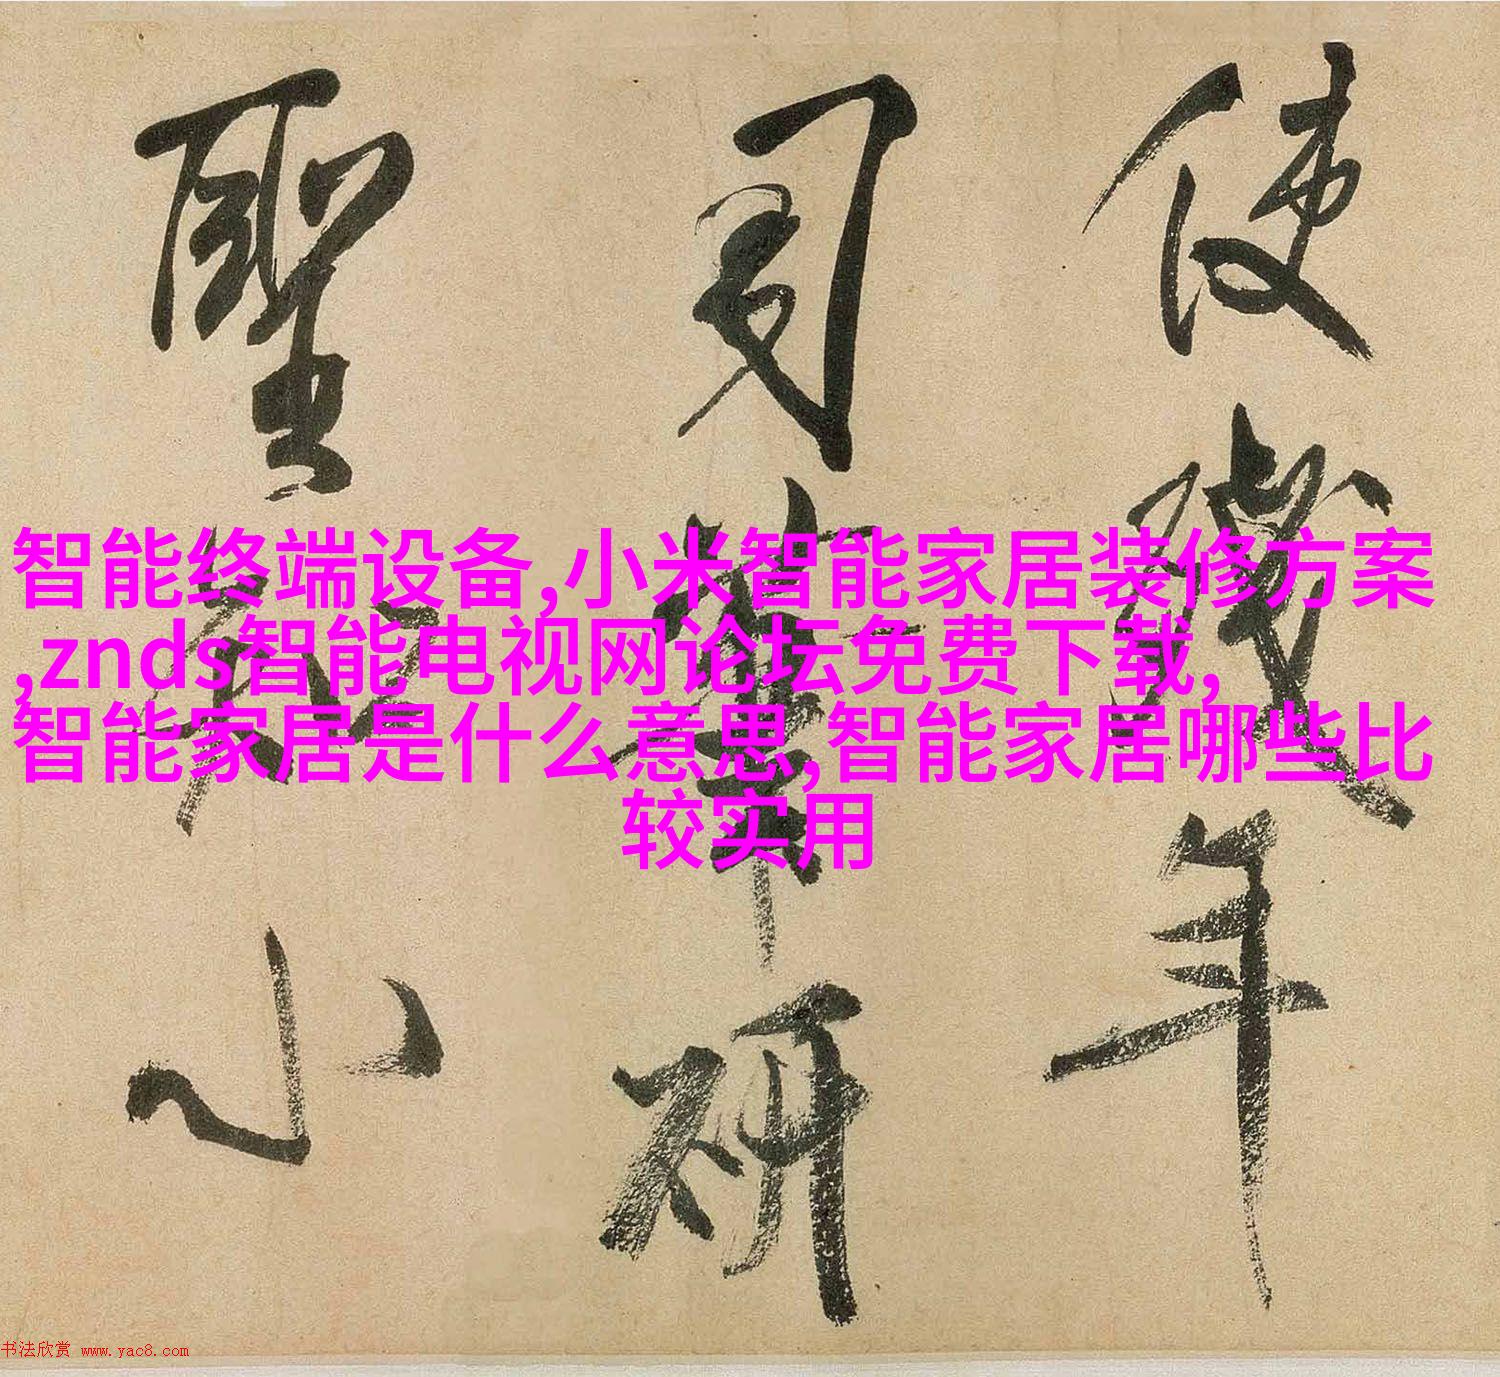 使
年
研
聖
智能终端设备,小米智能家居装修方案
,znds智能电视网论坛免费下载,
智能家居是什么意思,智能家居哪些比
较实用
书法欣赏 www.yac8.com